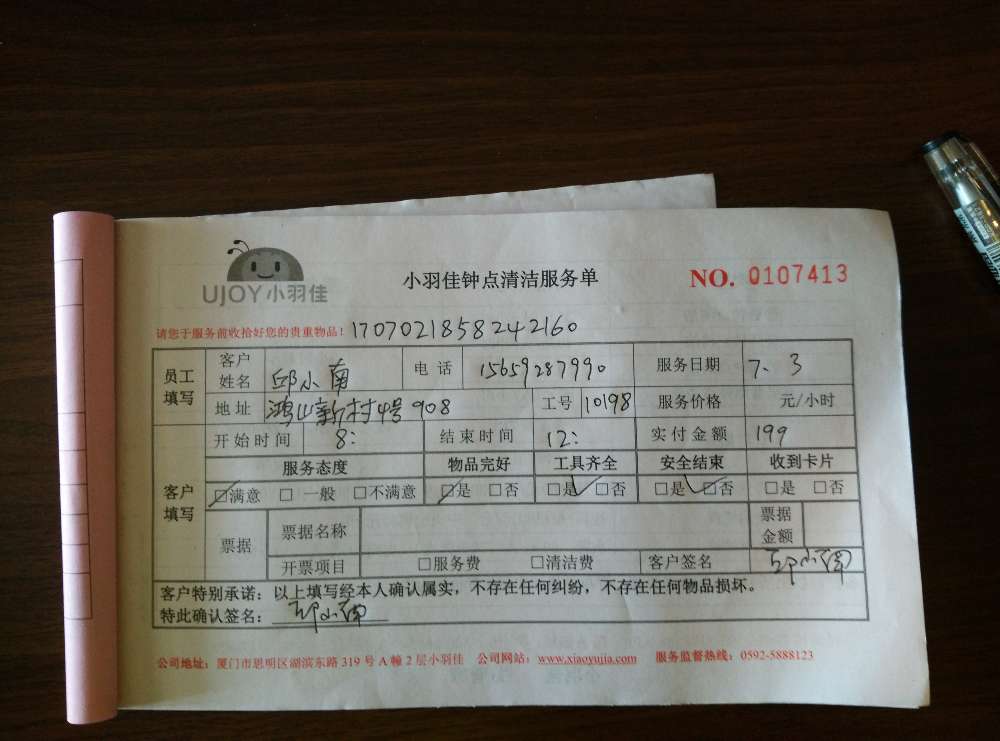 UJOY小羽佳
小羽佳钟点清洁服务单
NO. 0107413
请您于服务前收拾好您的贵重物品！ 1707021858242160
员工填写 客户姓名 邱小南 电话 15659287990 服务日期 7、3
地址 鸿山新村4号908 工号 10198 服务价格 元/小时
客户填写 开始时间 8: 结束时间 12: 实付金额 199
服务态度 物品完好 工具齐全 安全结束 收到卡片
☑满意 □一般 □不满意 ☑是 □否 ☑是 □否 ☑是 □否 □是 □否
票据 票据名称 票据金额
开票项目 □服务费 □清洁费 客户签名 邱小南
客户特别承诺：以上填写经本人确认属实，不存在任何纠纷，不存在任何物品损坏。
特此确认签名：邱小南
公司地址：厦门市思明区湖滨东路319号A幢2层小羽佳 公司网站：www.xiaoyujia.com 服务监督热线：0592-5888123